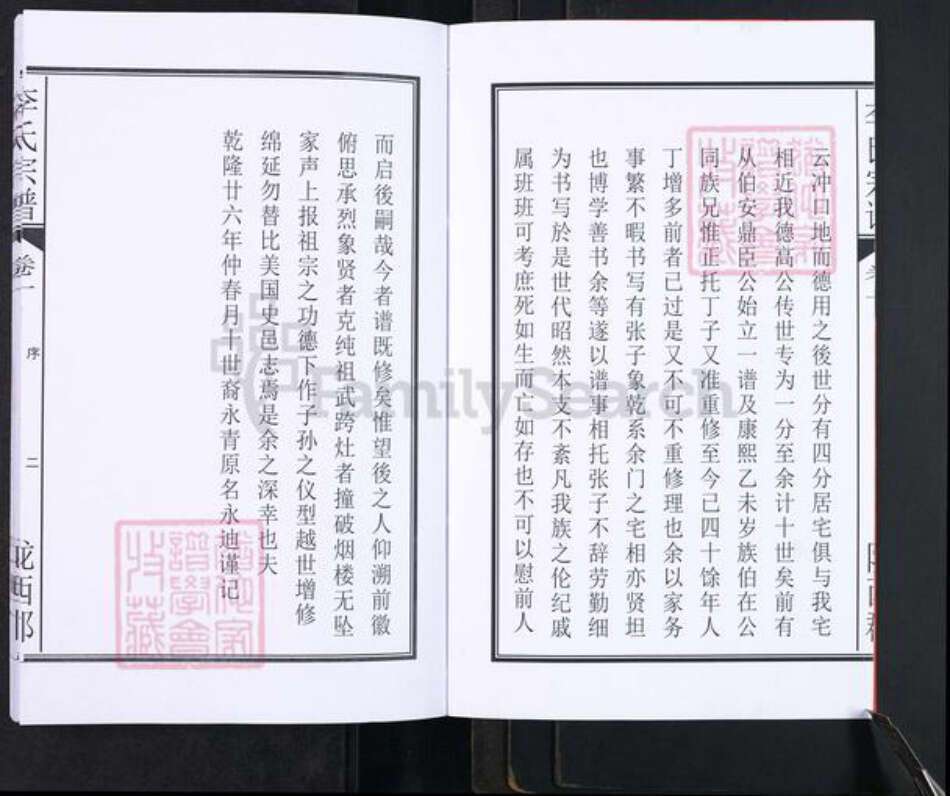 云冲口地而德用之後世分有四分居宅俱与我宅
相近我德高公传世专为一分至余计十世矣前有
从伯安鼎臣公始立一谱及康熙乙未岁族伯在公
同族兄惟正托丁子又准重修至今已四十馀年人
丁增多前者已过是又不可不重修理也余以家务
事繁不暇书写有张子象乾系余门之宅相亦贤坦
也博学善书余等遂以谱事相托张子不辞劳勤细
为书写於是世代昭然本支不紊凡我族之伦纪戚
属班班可考庶死如生而亡如存也不可以慰前人
而启後嗣哉今者谱既修矣惟望後之人仰溯前徽
俯思承烈象贤者克纯祖武跨灶者撞破烟楼无坠
家声上报祖宗之功德下作子孙之仪型越世增修
绵延勿替比美国史邑志焉是余之深幸也夫
乾隆廿六年仲春月十世裔永青原名永迪谨记
李氏宗谱
卷一
序
二
陇西郡
FamilySearch